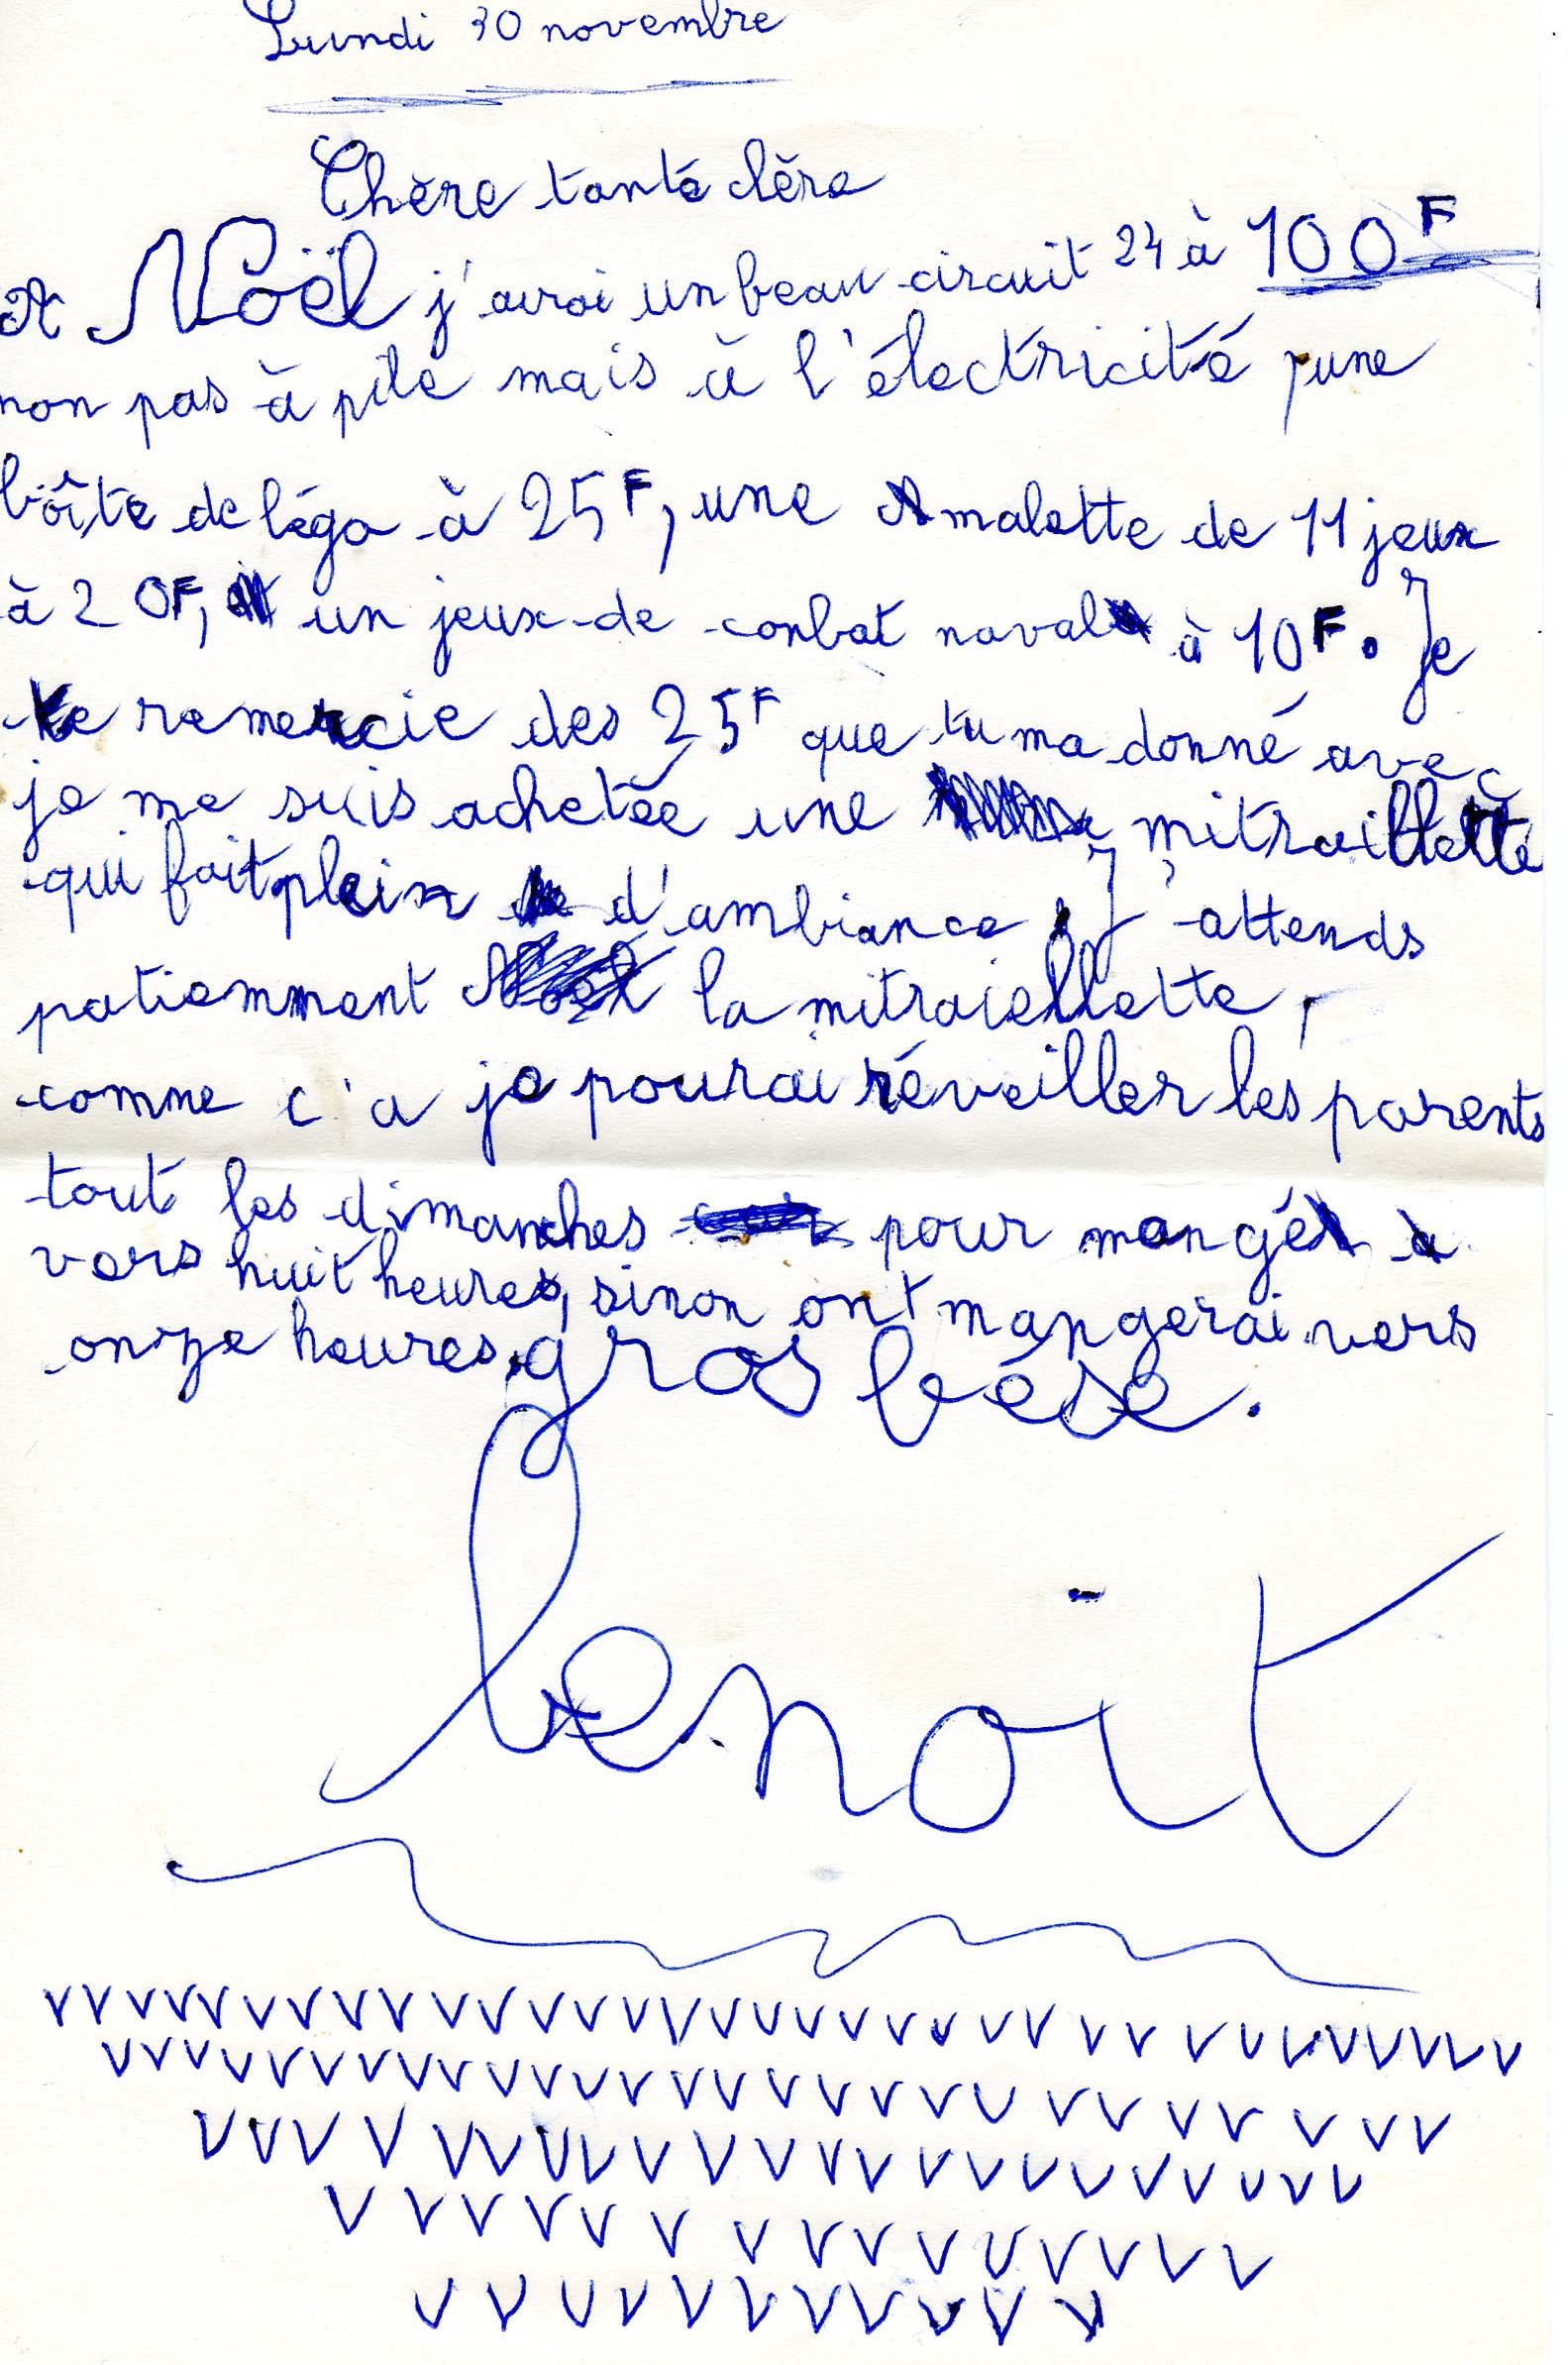 Lundi 30 novembre
Chère tante clère
A Noël j'aurai un beau circuit 24 à 100F
non pas à pile mais à l'électricité, une
bôîte de légo à 25F, une malette de 11 jeux
à 20F, un jeux de conbat naval à 10F. Je
te remercie des 25F que tu ma donné avec
je me suis achetée une mitraillette
qui fait plein d'ambiance, J'attends
patiemment la mitraiellette,
comme c'a je pourai réveiller les parents
tout les dimanches pour mangé
vers huit heures, sinon ont mangerai vers
onze heures. gros bése.
benoit
VVVVVVVVVVVVVVVVVVVVVVVVVVVVVVVVVV
VVVVVVVVVVVVVVVVVVVVVVVVVVV
VVVVVVVVVVVVVVVVVVVVVV
VVVVVVVVVVVVVVV
VVVVVVVVVVV